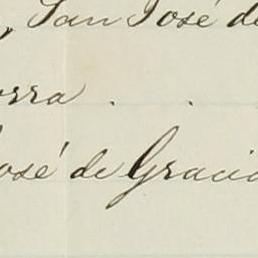 , San José de
orra . .
osé de Gracia